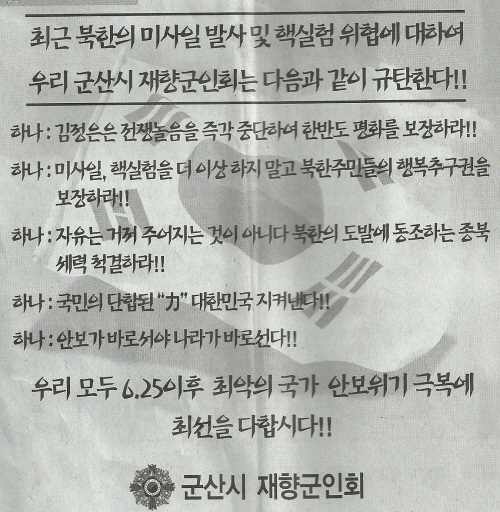 최근 북한의 미사일 발사 및 핵실험 위협에 대하여
우리 군산시 재향군인회는 다음과 같이 규탄한다!!
하나 : 김정은은 전쟁놀음을 즉각 중단하여 한반도 평화를 보장하라!!
하나 : 미사일, 핵실험을 더 이상 하지 말고 북한주민들의 행복추구권을
보장하라!!
하나 : 자유는 거저 주어지는 것이 아니다 북한의 도발에 동조하는 종북
세력 척결하라!!
하나 : 국민의 단합된 "力" 대한민국 지켜낸다!!
하나 : 안보가 바로서야 나라가 바로선다!!
우리 모두 6.25이후 최악의 국가 안보위기 극복에
최선을 다합시다!!
군산시 재향군인회